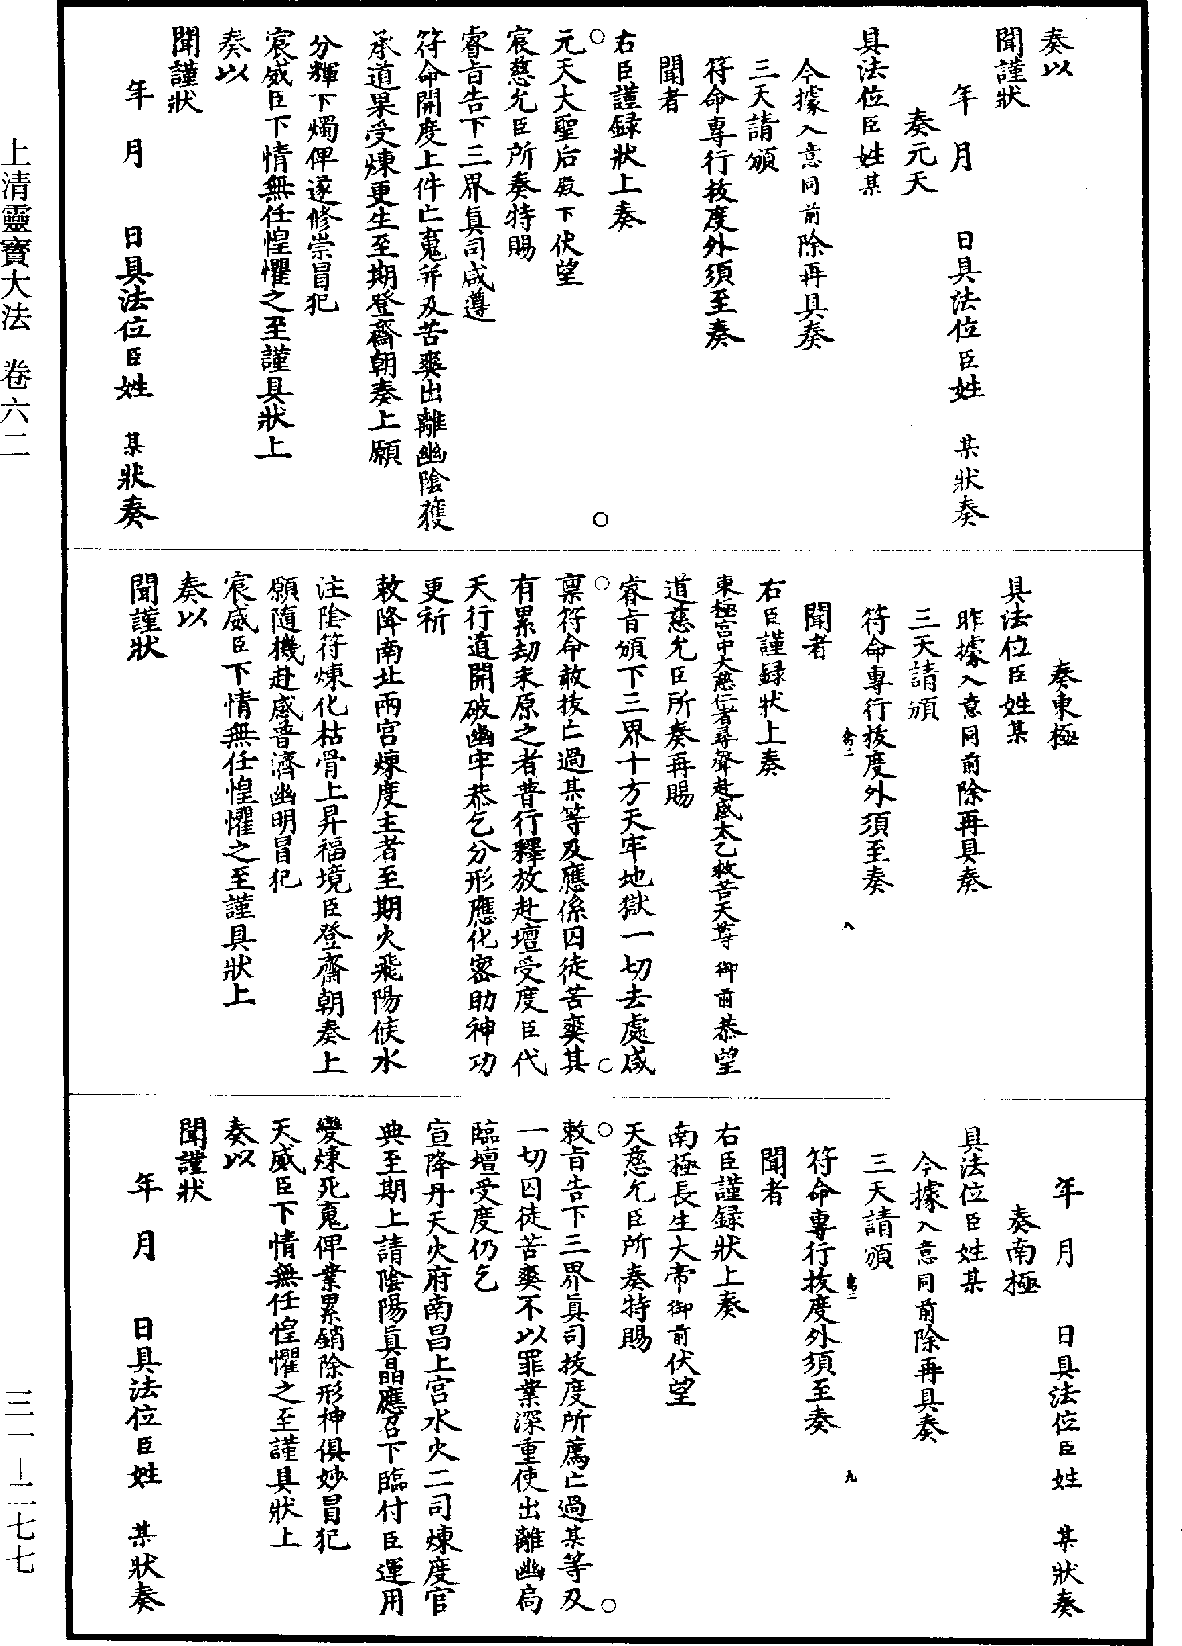 奏以
聞謹狀
年　月　　日具法位臣姓　某狀奏
奏元天
具法位臣姓某
今據入意同前除再具奏
三天請頒
符命專行拔度外須至奏
聞者
右臣謹録狀上奏
元天大聖后殿下伏望
宸慈允臣所奏特賜
睿旨告下三界真司咸遵
符命開度上件亡䰟并及苦爽出離幽陰獲
承道果受煉更生至期登齋朝奏上願
分輝下燭俾遂修崇冒犯
宸威臣下情無任惶懼之至謹具狀上
奏以
聞謹狀
年　月　　日具法位臣姓　某狀奏
奏東極
具法位臣姓某
昨據入意同前除再具奏
三天請頒
符命專行拔度外須至奏
八
聞者
右臣謹録狀上奏
東極宫中大慈仁者尋聲赴感太乙救苦天尊御前恭望
道慈允臣所奏再賜
睿旨頒下三界十方天牢地獄一切去處咸
禀符命敕拔亡過某等及應係囚徒苦爽其
有累劫未原之者普行釋放赴壇受度臣代
天行道開破幽牢恭乞分形應化密助神功
更祈
敕降南北兩宫煉度主者至期火飛陽候水
注陰符煉化枯骨上昇福境臣登齋朝奏上
願隨機赴感普濟幽明冒犯
宸威臣下情無任惶懼之至謹具狀上
奏以
聞謹狀
年　月　　日具法位臣姓　某狀奏
奏南極
具法位臣姓某
今據入意同前除再具奏
三天請頒
符命專行拔度外須至奏
九
聞者
右臣謹録狀上奏
南極長生大帝御前伏望
天慈允臣所奏特賜
敕旨告下三界真司拔度所薦亡過某等及
一切囚徒苦爽不以罪業深重使出離幽扃
臨壇受度仍乞
宣降丹天火府南昌上宫水火二司煉度官
典至期上請陰陽真晶應召下臨付臣運用
變煉死䰟俾業累銷除形神俱妙冒犯
天威臣下情無任惶懼之至謹具狀上
奏以
聞謹狀
年　月　　日具法位臣姓　某狀奏
上清靈寶大法　卷六二
三一－二七七